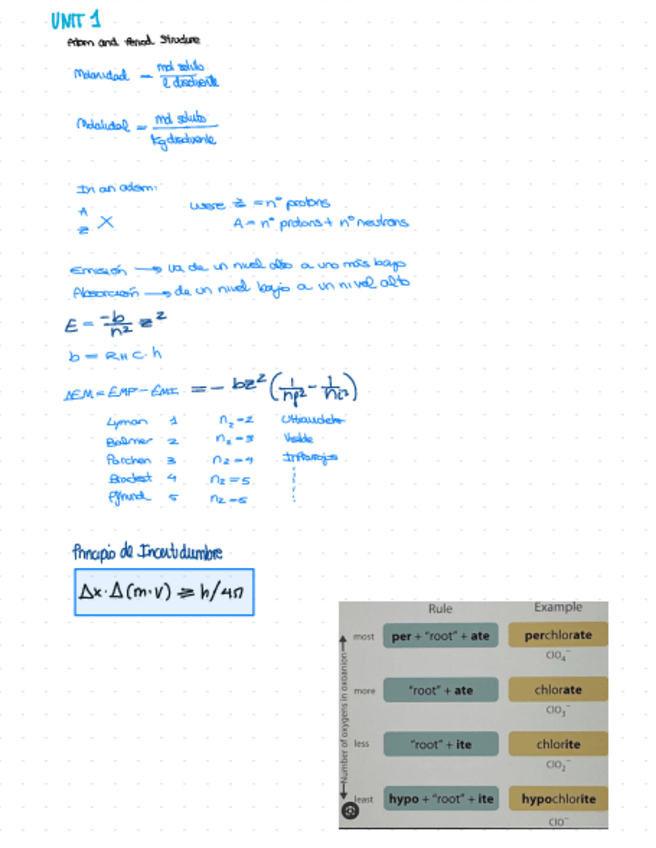 UNIT 1
Atom and Period Structure
Molaridad = mol soluto / l disolvente
Molalidad = mol soluto / Kg disolvente
In an atom:
A
Z X
were Z = nº protons
A = nº protons + nº neutrons
Emisión → va de un nivel alto a uno más bajo
Absorción → de un nivel bajo a un nivel alto
E = -b/n² z²
b = RH C·h
= - bz² (1/nf² - 1/ni²)
Lyman 1 n₂=2 Ultravioleta
Balmer 2 n₂=3 Visible
Parchen 3 n₂=4 Infrarrojo
Bracket 4 n₂=5
Pfund 5 n₂=6
Principio de Incertidumbre
Δx·Δ(m·v) ≥ h/4π
Rule Example
most per + "root" + ate perchlorate
ClO₄⁻
more "root" + ate chlorate
ClO₃⁻
less "root" + ite chlorite
ClO₂⁻
least hypo + "root" + ite hypochlorite
ClO⁻
Number of oxygens in oxoanion